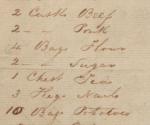 2 Casks Beef
2 - - Pork
4 Bags Flour
2 - - Sugar
1 Chest Tea
3 Kegs Nails
10 Bags Potatoes